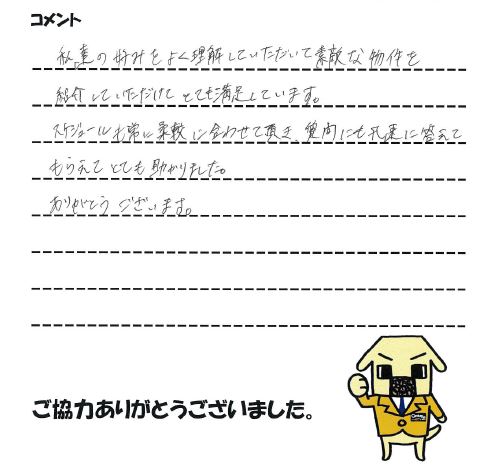 コメント
私達の好みをよく理解していただいて素敵な物件を
紹介していただけてとても満足しています。
スケジュールも常に柔軟に合わせて頂き、質問にも迅速に答えて
もらえてとても助かりました。
ありがとうございます。
ご協力ありがとうございました。